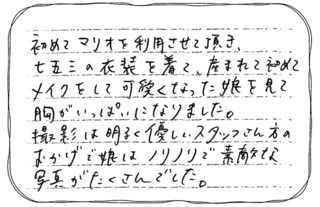 初めてマリオを利用させて頂き、
七五三の衣装を着て、産まれて初めて
メイクをして可愛くなった娘を見て
胸がいっぱいになりました。
撮影は明るく優しいスタッフさん方の
おかげで娘はノリノリで素敵な
写真がたくさんでした。